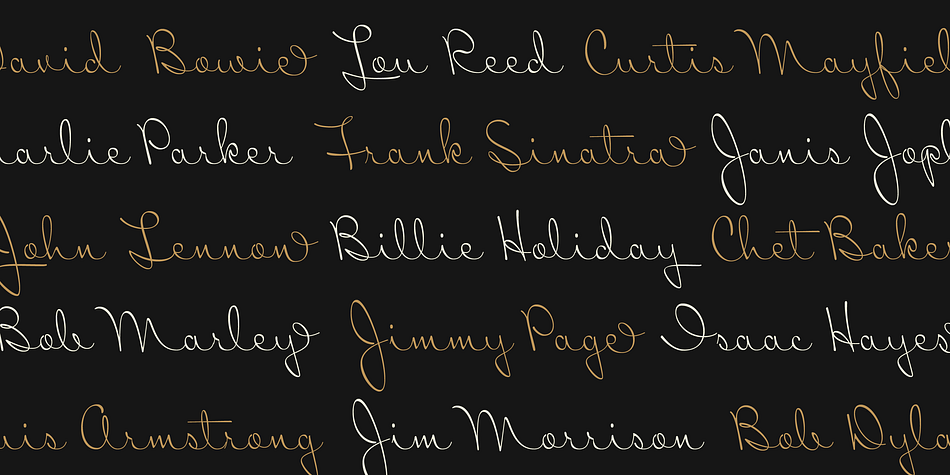 David Bowie Lou Reed Curtis Mayfiel
arlie Parker Frank Sinatra Janis Jopl
John Lennon Billie Holiday Chet Baker
Bob Marley Jimmy Page Isaac Hayes
uis Armstrong Jim Morrison Bob Dyla